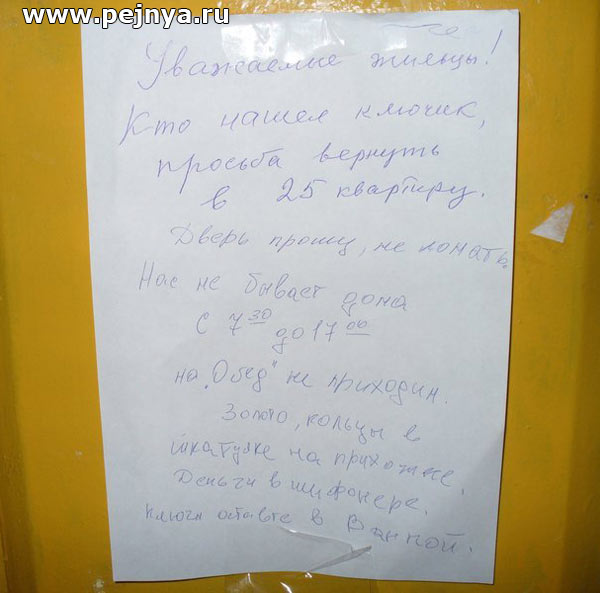 www.pejnya.ru
Уважаемые жильцы!
Кто нашел ключик,
просьба вернуть
в 25 квартиру.
Дверь прошу, не ломать.
Нас не бывает дома
с 7 30 до 17 00
на "Обед" не приходим.
Золото, кольцы в
шкатулке на прихожке.
Деньги в шифонере.
ключи оставте в Ванной.